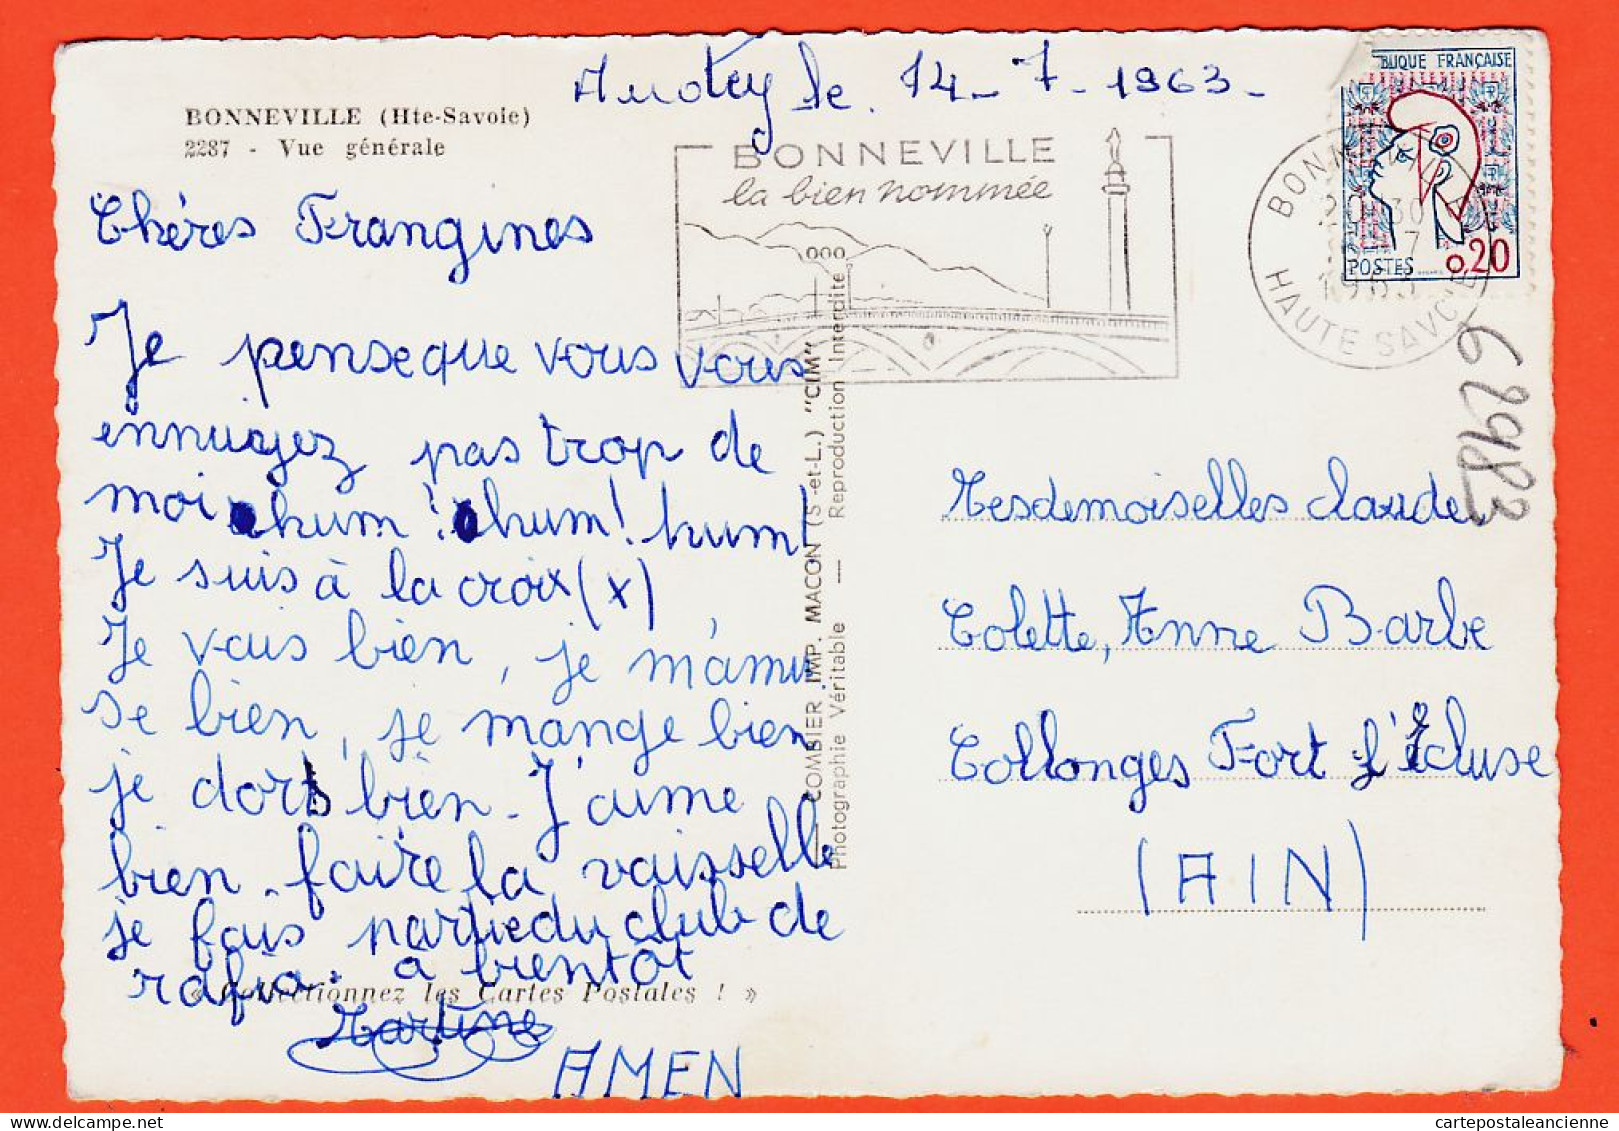 Anotey le. 14-7-1963-
BONNEVILLE (Hte-Savoie)
2287 - Vue générale
BONNEVILLE
la bien nommée
BLIQUE FRANÇAISE
POSTES 0,20
BONNEVILLE
20 30
7
1963
HAUTE SAVOIE
Chères Frangines
Je pense que vous vous
ennuyez pas trop de
moi hum! hum! hum!
Je suis à la croix (x)
Je vais bien, je m'amu
se bien, je mange bien
je dors bien. J'aime
bien faire la vaisselle
je fais partie du club de
rafia. à bientôt
« Collectionnez les Cartes Postales ! »
Martine
AMEN
COMBIER IMP. MACON (S.-et-L.) "CIM"
Photographie Véritable — Reproduction Interdite
Mesdemoiselles Claude,
Colette, Anne Barbe
Collonges Fort l'Écluse
(AIN)
62983
cartepostaleancienne